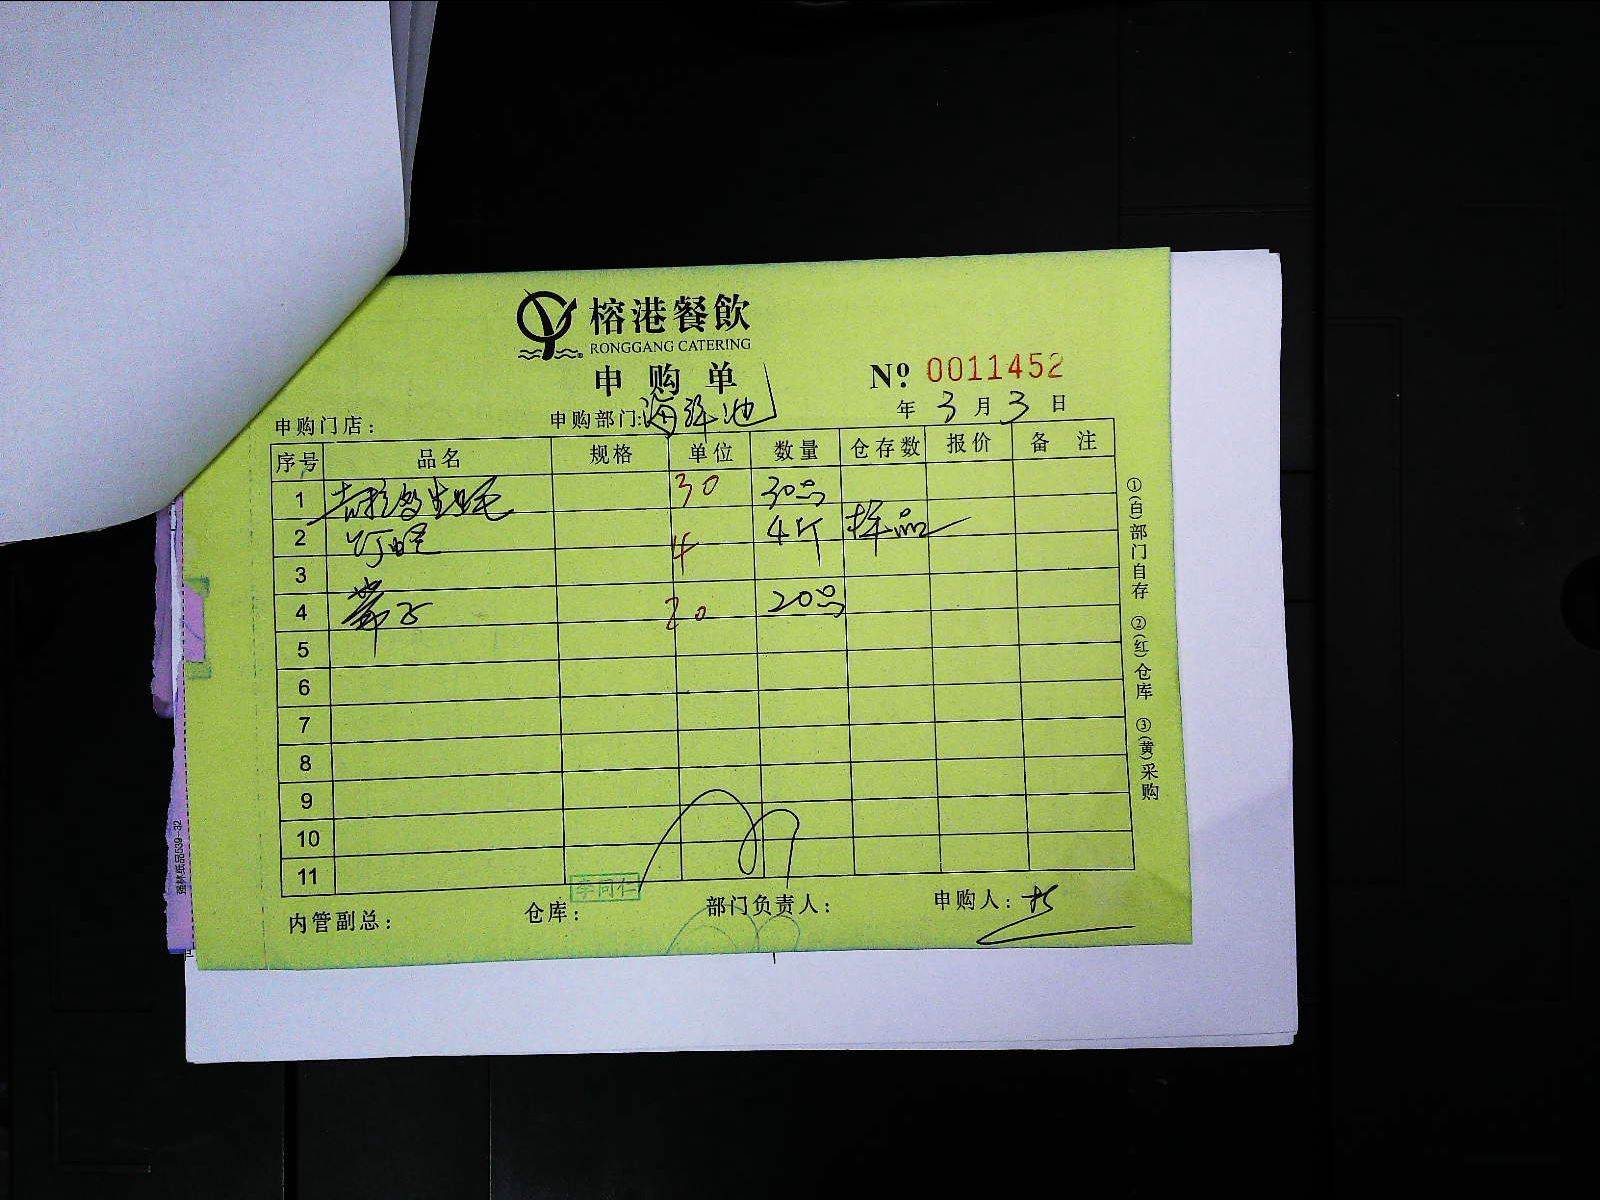 榕港餐飲
RONGGANG CATERING
申购单
№ 0011452
年 3 月 3 日
申购门店:
申购部门:海鲜池
序号 品名 规格 单位 数量 仓存数 报价 备注
1 吉拉多生蚝 30 30只
2 4 4斤 样品
3
4 带子 20 20只
5
6
7
8
9
10
11
内管副总:
仓库: 李同仁
部门负责人:
申购人:
①(白)部门自存 ②(红)仓库 ③(黄)采购